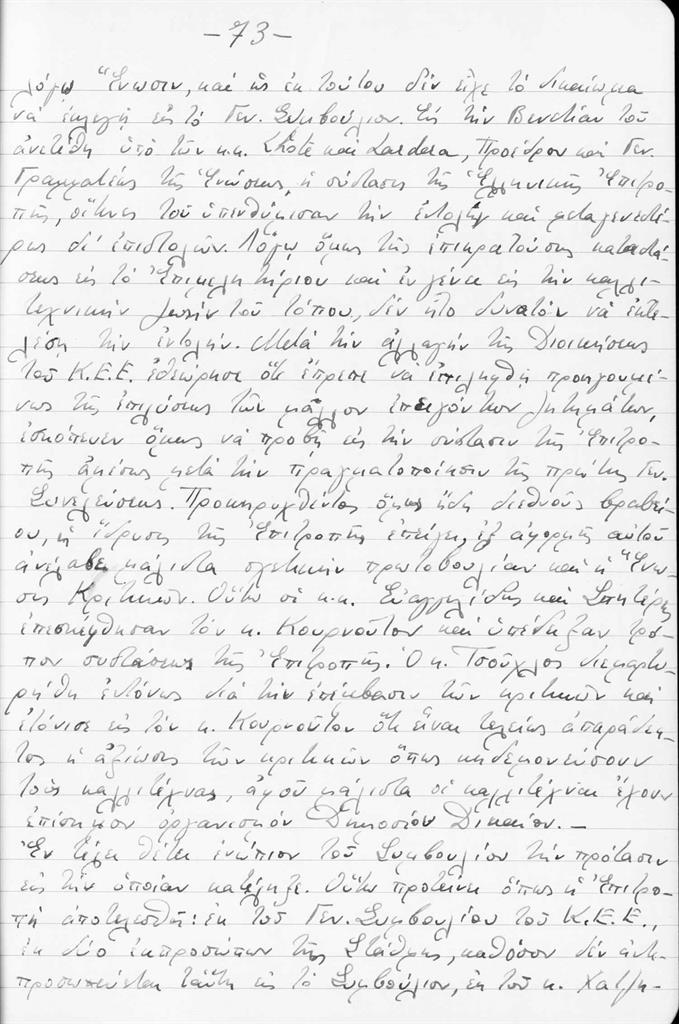 -73-
λόγῳ Ἕνωσιν, καί ὡς ἐκ τούτου δέν εἶχε τό δικαίωμα
νά ἐκλεγῇ εἰς τό Γεν. Συμβούλιον. Εἰς τήν Βενετίαν τοῦ
ἀνετέθη ὑπό τῶν κ.κ. Lhote καί Lardera, Προέδρου καί Γεν.
Γραμματέως τῆς Ἑνώσεως, ἡ σύστασις τῆς Ἑλληνικῆς Ἐπιτρο-
πῆς, οἵτινες τοῦ ὑπενθύμισαν τήν ἐντολήν καί μεταγενεστέ-
ρως δι' ἐπιστολῶν. Λόγῳ ὅμως τῆς ἐπικρατούσης καταστά-
σεως εἰς τό Ἐπιμελητήριον καί ἐν γένει εἰς τήν καλλι-
τεχνικήν ζωήν τοῦ τόπου, δέν ἦτο δυνατόν νά ἐκτε-
λέσῃ τήν ἐντολήν. Μετά τήν ἀλλαγήν τῆς Διοικήσεως
τοῦ Κ.Ε.Ε. ἐθεώρησε ὅτι ἔπρεπε νά ἐπιληφθῇ προηγουμέ-
νως τῆς ἐπιλύσεως τῶν μᾶλλον ἐπειγόντων ζητημάτων,
ἐσκόπευεν ὅμως νά προβῇ εἰς τήν σύστασιν τῆς Ἐπιτρο-
πῆς ἀμέσως μετά τήν πραγματοποίησιν τῆς πρώτης Γεν.
Συνελεύσεως. Προκηρυχθέντος ὅμως ἤδη διεθνοῦς βραβεί-
ου, ἡ ἵδρυσις τῆς Ἐπιτροπῆς ἐπείγει, ἐξ ἀφορμῆς αὐτοῦ
ἀνέλαβε μάλιστα σχετικήν πρωτοβουλίαν καί ἡ Ἕνω-
σις Κριτικῶν. Οὕτω οἱ κ.κ. Εὐαγγελίδης καί Σπητέρης
ἐπεσκέφθησαν τόν κ. Κουρνοῦτον καί ὑπέδειξαν τρό-
πον συστάσεως τῆς Ἐπιτροπῆς. Ὁ κ. Τσοῦχλος διεμαρτυ-
ρήθη ἐντόνως διά τήν ἐπέμβασιν τῶν κριτικῶν καί
ἐτόνισε εἰς τόν κ. Κουρνοῦτον ὅτι εἶναι τελείως ἀπαράδεκ-
τος ἡ ἀξίωσις τῶν κριτικῶν ὅπως κηδεμονεύσουν
τούς καλλιτέχνας, ἀφοῦ μάλιστα οἱ καλλιτέχναι ἔχουν
ἐπίσημον ὀργανισμόν Δημοσίου Δικαίου.—
Ἐν τέλει θέτει ἐνώπιον τοῦ Συμβουλίου τήν πρότασιν
εἰς τήν ὁποίαν κατέληξε. Οὕτω προτείνει ὅπως ἡ Ἐπιτρο-
πή ἀποτελεσθῇ: ἐκ τοῦ Γεν. Συμβουλίου τοῦ Κ.Ε.Ε.,
ἐκ δύο ἐκπροσώπων τῆς Στάθμης, καθόσον δέν ἀντι-
προσωπεύεται αὕτη εἰς τό Συμβούλιον, ἐκ τοῦ κ. Χατζη-